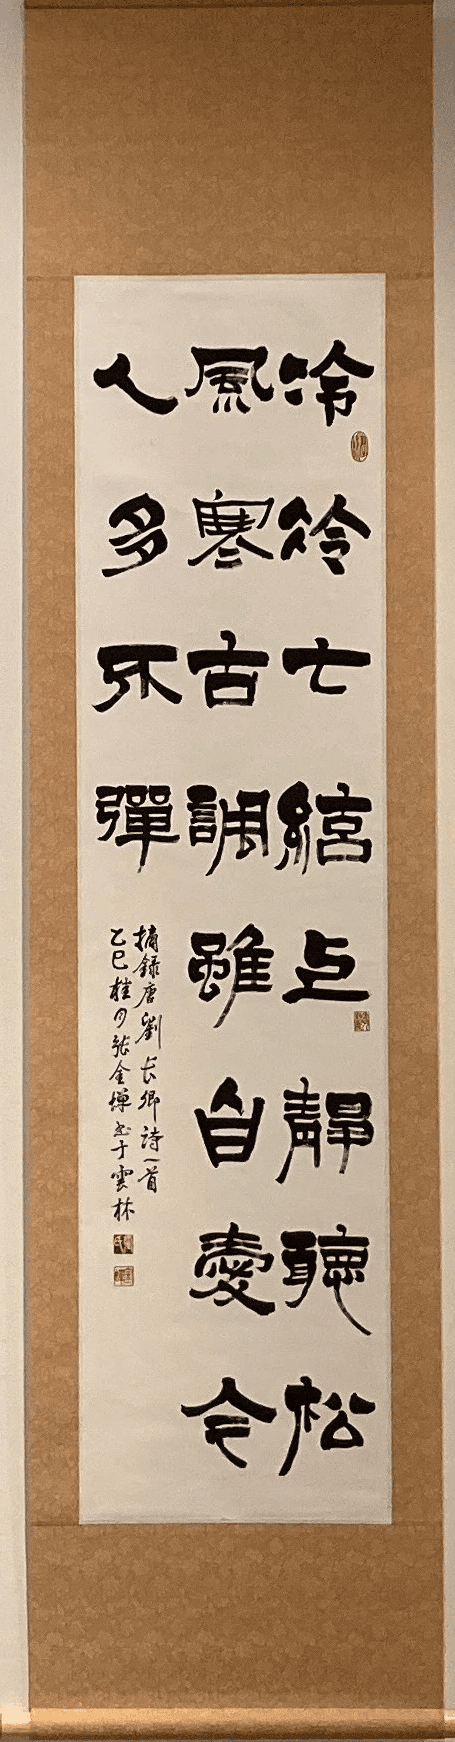 泠泠七絃上靜聽松
風寒古調雖自愛今
人多不彈
摘錄唐劉長卿詩一首
乙巳桂月張金書于雲林